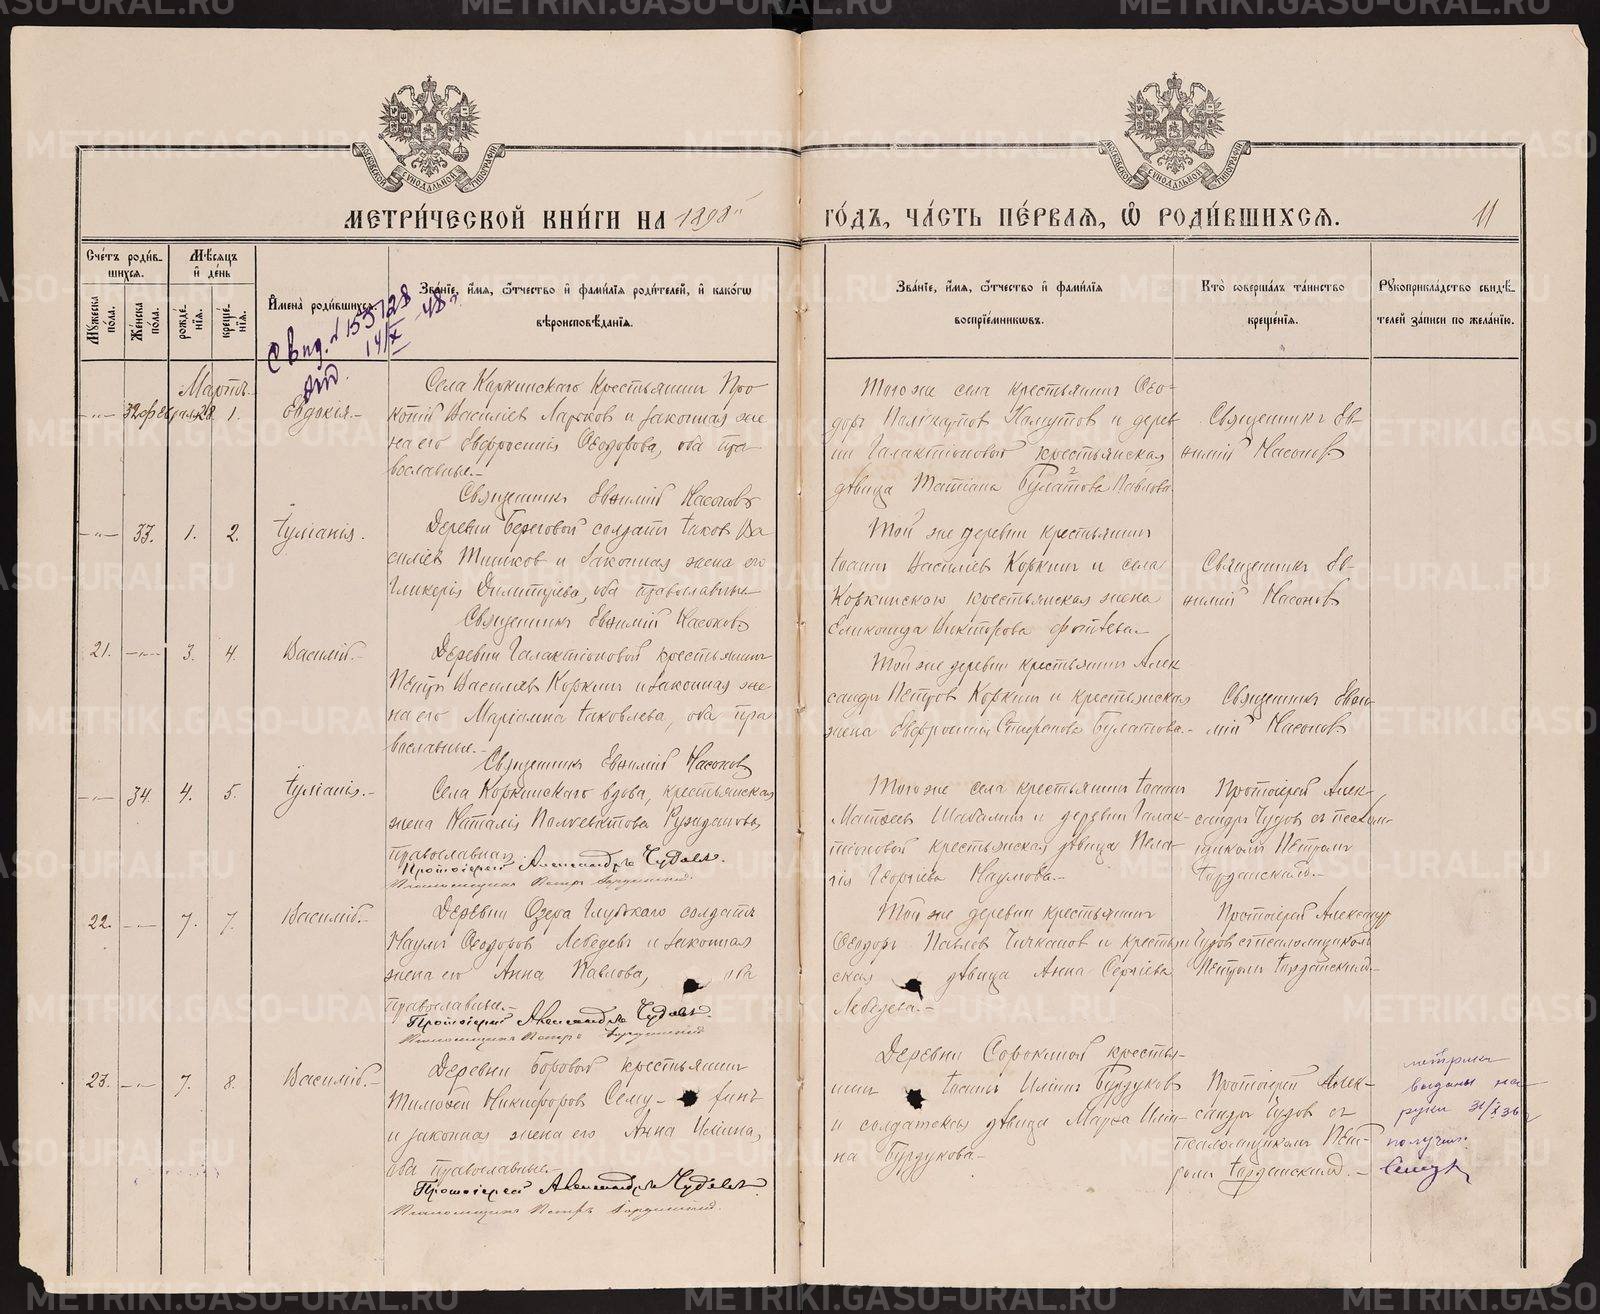 METRIKI.GASO-URAL.RU
МОСКОВСКОЙ СѴНОДАЛЬНОЙ ТИПОГРАФІИ
МОСКОВСКОЙ СѴНОДАЛЬНОЙ ТИПОГРАФІИ
МЕТРИ́ЧЕСКОЙ КНИ́ГИ НА 1898 ГО́ДЪ, ЧА́СТЬ ПЕ́РВАЯ, Ѽ РОДИ́ВШИХСЯ.
11
Сче́тъ роди́в-
шихся.
Мѣсяцъ
и҆ де́нь
Мꙋжеска по́ла.
Же́нска по́ла.
рожде́-
нїя.
креще́-
нїя.
И҆мена̀ роди́вшихся.
Зва́нїе, и҆́мя, ѻ҆́тчество и҆ фами́лїя роди́телей, и҆ како́гѡ
вѣроисповѣ́данїя.
Зва́нїе, и҆́мя, ѻ҆́тчество и҆ фами́лїя
воспрїе́мникѡвъ.
Кто̀ соверша́лъ та́инство
креще́нїя.
Рꙋкоприкла́дство свидѣ́-
телей за́писи по жела́нїю.
Мартъ.
32 февраля 28 1. Евдокія.
Села Коркинскаго крестьянинъ Про
копій Василіевъ и законная же
на его Евфросинія Ѳеодорова, оба пра
вославные.
Священникъ Евѳимій Насоновъ
Того же села крестьянинъ Ѳео-
доръ и дерев
ни Галактіоновой крестьянская
дѣвица Татіана Булатова Павлова
Священникъ Ев-
ѳимій Насоновъ
33. 1. 2. Іуліанія.
Деревни Береговой солдатъ Іаковъ Ва
силіевъ и законная жена его
Гликерія Димитріева, оба православные
Священникъ Евѳимій Насоновъ
Той же деревни крестьянинъ
Іоаннъ Василіевъ Коркинъ и села
Коркинскаго крестьянская жена
Викторова
Священникъ Ев-
ѳимій Насоновъ
21. 3. 4. Василій.
Деревни Галактіоновой крестьянинъ
Петръ Василіевъ Коркинъ и законная же
на его Маріамна Іаковлева, оба пра
вославные.
Священникъ Евѳимій Насоновъ
Той же деревни крестьянинъ Алек
сандръ Петровъ Коркинъ и крестьянская
жена Евфросинія Стефанова Булатова.
Священникъ Евѳи
мій Насоновъ
34. 4. 5. Іуліанія.
Села Коркинскаго вдова, крестьянская
жена Наталія
православная
Протоіерей Александръ Чудовъ.
Псаломщикъ Петръ Іорданскій.
Того же села крестьянинъ Іоаннъ
Матѳеевъ Шабалинъ и деревни Галак-
тіоновой крестьянская дѣвица Пела-
гія Георгіева Наумова.
Протоіерей Алек-
сандръ Чудовъ съ псалом-
щикомъ Петромъ
Іорданскимъ.
22. 7. 7. Василій.
Деревни Озера Глубокаго солдатъ
Наумъ Ѳеодоровъ Лебедевъ и законная
жена его Анна Павлова, оба
православные.
Протоіерей Александръ Чудовъ.
Псаломщикъ Петръ Іорданскій
Той же деревни крестьянинъ
Ѳеодоръ Павловъ Чичкановъ и крестьян
ская дѣвица Анна Сергіева
Лебедева.
Протоіерей Александръ
Чудовъ съ псаломщикомъ
Петромъ Іорданскимъ.
23. 7. 8. Василій.
Деревни Боровой крестьянинъ
Тимоѳей Никифоровъ Сему- -хинъ
и законная жена его Анна Иліина,
оба православные.
Протоіерей Александръ Чудовъ.
Псаломщикъ Петръ Іорданскій.
Деревни Сорокиной крестья-
нинъ Іоаннъ Иліинъ Бурдуковъ
и солдатская дѣвица Марѳа Илiи-
на Бурдукова
Протоіерей Алек-
сандръ Чудовъ съ
псаломщикомъ Пет-
ромъ Іорданскимъ.
метрика
выданы на
руки
получил: